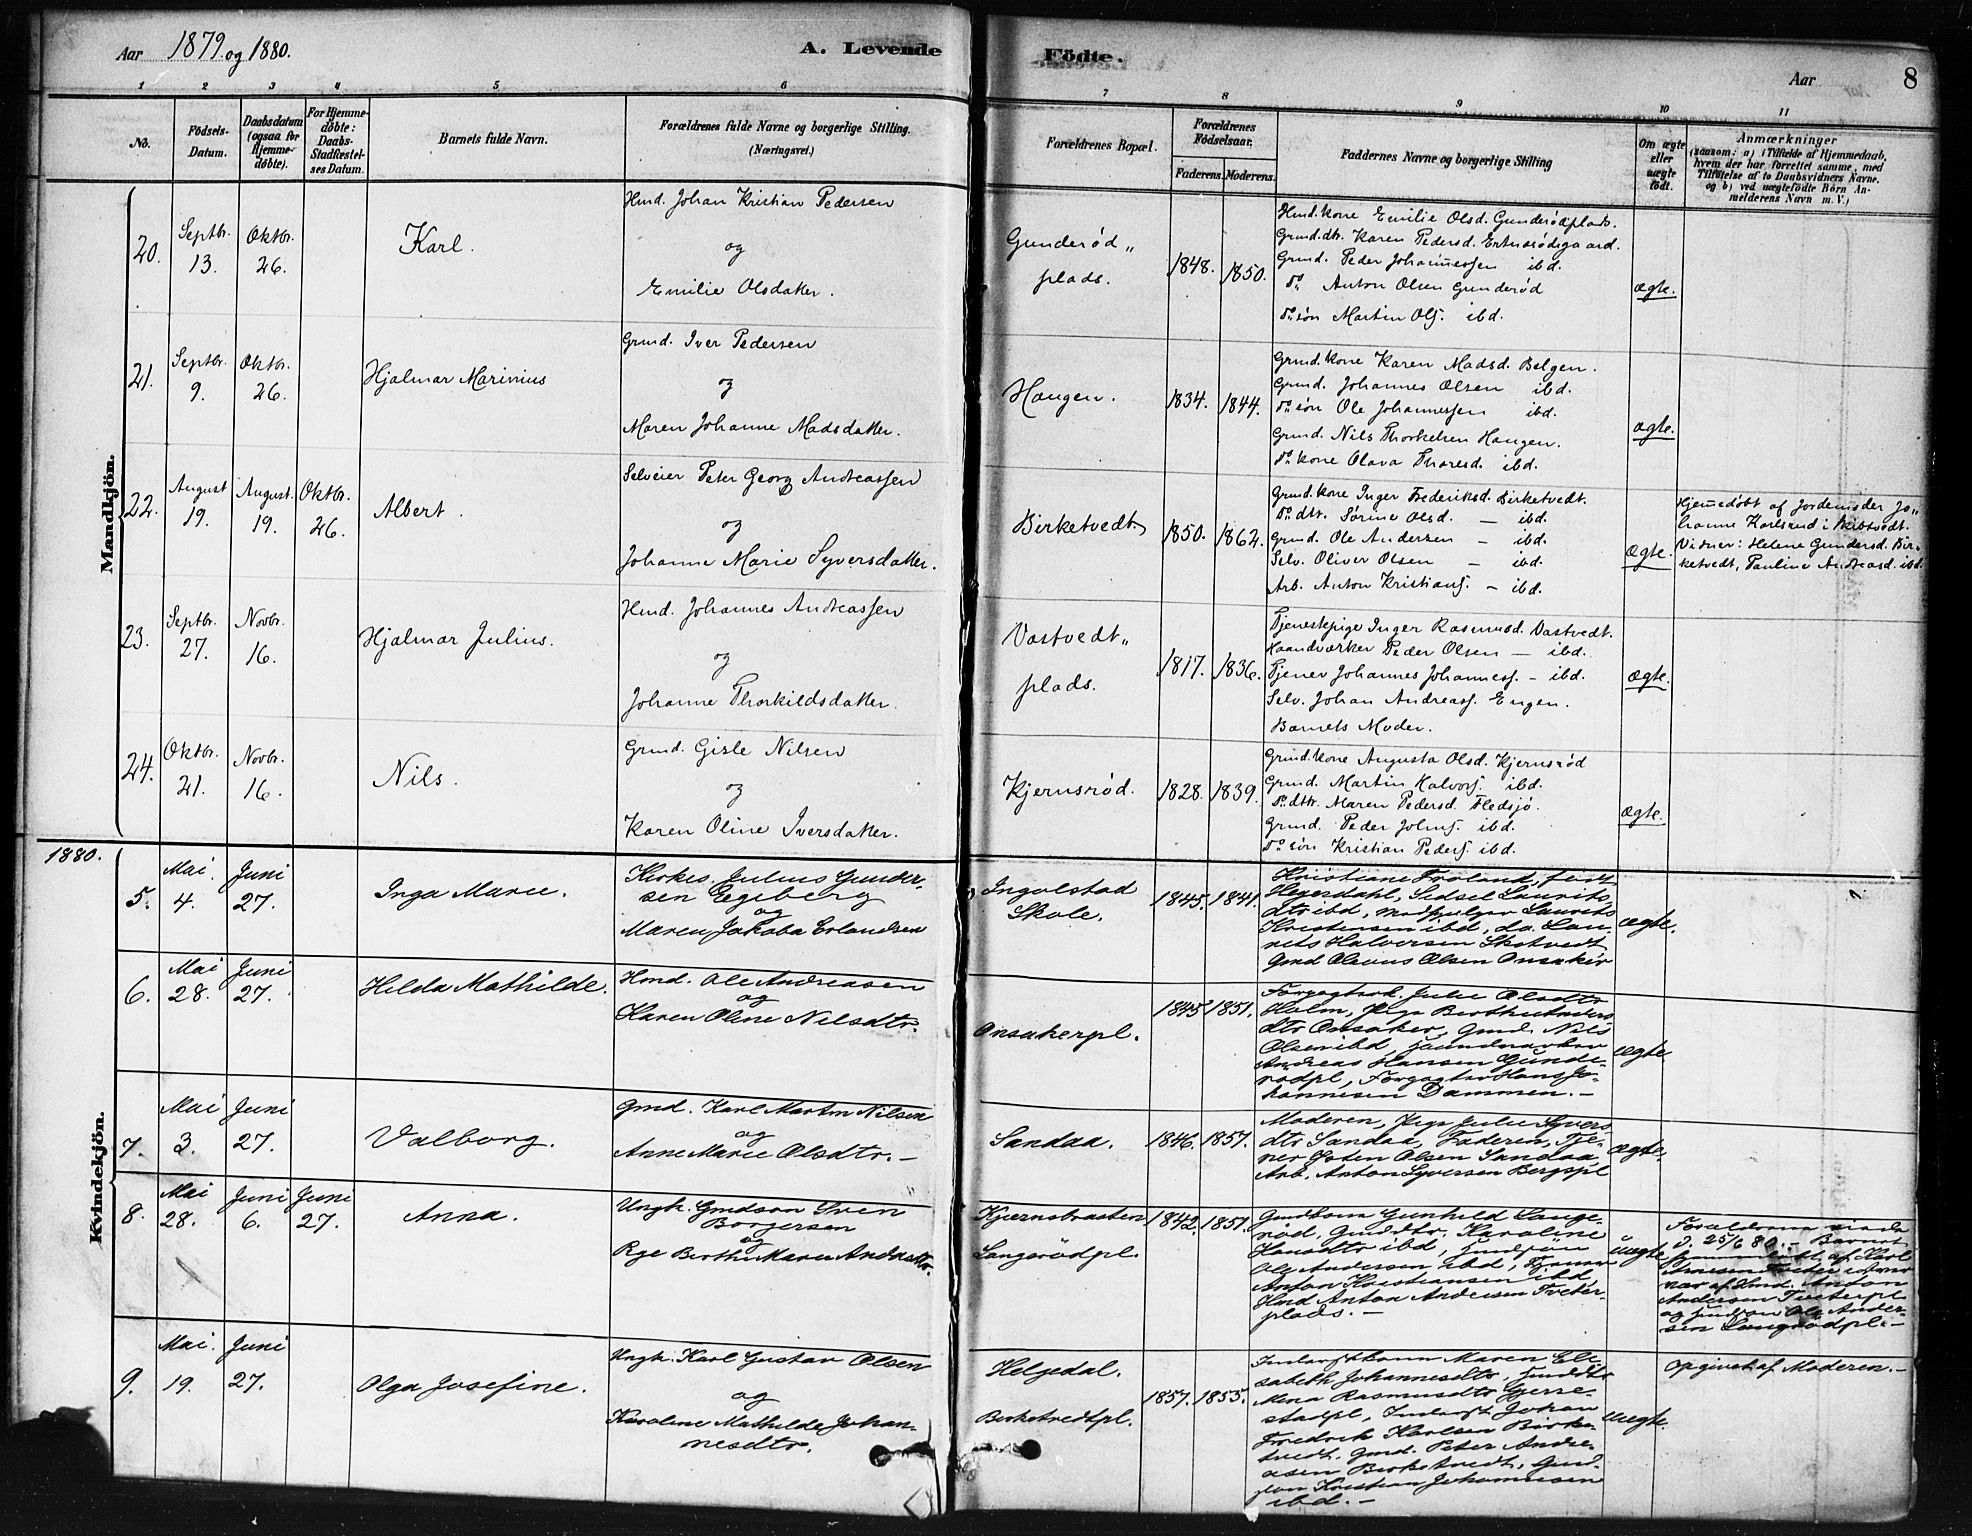 Aar 1879 og 1880.
A. Levende
Födte.
Aar
8
1 2 3 4 5 6 7 8 9 10 11
No.
Födsels-
Datum.
Daabsdatum
(ogsaa for
Hjemme-
döbte).
For Hjemme-
döbte:
Daabs-
Stadfæstel-
ses Datum.
Barnets fulde Navn.
Forældrenes fulde Navne og borgerlige Stilling.
(Næringsvei.)
Forældrenes Bopæl.
Forældrenes
Födselsaar.
Faderens. Moderens.
Faddernes Navne og borgerlige Stilling
Om ægte
eller
uægte
födt.
Anmærkninger
(saasom: a) i Tilfælde af Hjemmedaab,
hvem der har forrettet samme, med
Tilföielse af to Daabsvidners Navne.
og b) ved uægtefödte Börn An-
melderens Navn m. V.)
Mandkjön.
20.
Septbr.
13.
Oktbr.
26.
Karl.
Hmd. Johan Kristian Pedersen
og
Emilie Olsdatter.
Gunderød„
plads.
1848. 1850.
Hmd. kone Emilie Olsd. Gunderødplads.
Grund. dtr. Karen Pedersd.
Grund. Peder Johannessen ibd.
Do Anton Olsen Gunderød
Do søn Martin Ols. ibd.
ægte.
21.
Septbr.
9.
Oktbr.
26.
Hjalmar Marinius
Grmd. Iver Pedersen
og
Maren Johanne Madsdatter.
Haugen.
1834. 1844.
Grmd. kone Karen Madsd. Bølgen.
Grmd. Johannes Olsen ibd.
Do søn Ole Johannessen ibd.
Grmd. Nils Thorkelsen Haugen.
Do kone Olava Thoresd. ibd.
ægte.
22.
August
19.
August.
19.
Oktbr.
26.
Albert.
Selveier Peter Georg Andreassen
og
Johanne Marie Syversdatter.
Birketvedt
1850. 1862.
Grmd. kone Inger Frederiksd. Birketvedt.
Do dtr. Sørine Olsd. — ibd.
Grmd. Ole Andersen — ibd.
Selv. Oliver Olsen — ibd.
Arb. Anton Kristians. — ibd.
Ægte.
Hjemmedøbt af Jordemoder Jo„
hanne Karlsrud i Skibtvedt.
Vidner: Helene Gundersd. Bir-
ketvedt, Pauline Andreasd. ibd.
23.
Septbr.
27.
Novbr.
16.
Hjalmar Julius.
Hmd. Johannes Andreassen
og
Johanne Thorkildsdatter.
Vastvedt„
plads.
1817. 1836.
Tjenestepige Inger Rasmusd. Vastvedt.
Haandværker Peder Olsen — ibd.
Tjener Johannes Johanness. — ibd.
Selv. Johan Andreass. Engen.
Barnets Moder.
Ægte.
24.
Oktbr.
21.
Novbr.
16.
Nils.
Grmd. Gisle Nilsen
og
Karen Oline Iversdatter.
Kjernsrød.
1828. 1839.
Grmd. kone Augusta Olsd. Kjernsrød
Grmd. Martin Halvors. ibd.
Do dtr. Maren Pedersd. Fledsjø.
Grmd. Peder Johns. ibd.
Do søn Kristian Peders. ibd.
Ægte.
1880.
Kvindekjön.
5.
Mai.
4.
Juni
27.
Inga Marie.
Kirkes. Julius Gunder-
sen Egeberg
og
Maren Jakoba Erlandsen
Ingolstad
Skole.
1845. 1841.
Kristiane Frøland, født
Hejersdahl, Sidsel Laurits
dtr ibd, Laurits
Kristensen ibd, do. Lau-
rits Halvorsen Skotvedt
Gmd Olsen Onsaker
Ægte.
6.
Mai
28.
Juni
27.
Hilda Mathilde.
Hmd. Ole Andreasen
og
Karen Oline Nilsdtr.
Onsakerpl.
1845 1851.
Forpagterk. Julie Olsdtr
Holm, Pige Berthe Anders
dtr Onsaker, Gmd. Nils
Olsen ibd,
Andreas Hansen Gunde-
rødpl, Forpagter Hans Jo-
hannesen Dammen. —
Ægte
7.
Mai
3.
Juni
27.
Valborg.
Gmd. Karl Martin Nilsen
og
Anne Marie Olsdtr. —
Sandaa.
1846. 1857.
Moderen, Pige Julie Syvers-
dtr Sandaa, Faderen, Tje-
ner Olsen Sandaa
Arb. Anton Syversen Bergspl
Ægte.
8.
Mai
28.
Juni
6.
Juni
27.
Anna.
Ungk. Gmdsøn Sven
Borgersen
og
Pge Berthe Marie Andersdtr.
Kjærnsbraaten
Langerødpl.
1842. 1851.
Gmdkone Gunhild Lange-
rød, Gmddtr. Karoline
Hansdtr ibd, Gmdsøn
Ole Andersen ibd, Tjener
Anton Kristiansen ibd,
Hmd Anton Andersen Tveter-
plads. —
uægte
Forældrene viede
d. 25/6 80. — Barnet
hjemmedøbt af Karl
Arnesen Tveter i Nær-
vær af Hmd. Anton
Andersen Tveterpl
og Gmdsøn Ole Ander-
sen Langrødpl. —
9.
Mai.
19.
Juni
27.
Olga Josefine.
Ungk. Karl Gustav Olsen
og
Karoline Mathilde Johan-
nesdtr.
Helgedal.
Birketvedtpl.
1857. 1855.
Inderstkone Maren Eli-
sabeth Johannesdtr, Gmddtr
Mena Rasmusdtr Gjerre-
stadpl, Inderst Johan
Fredrik Karlsen Birke-
tvedt, Gmd. Peter Andre-
asen Birketvedt, Gmd-
søn Kristian Johannesen
ibd. —
uægte.
Opgivet af Moderen. —